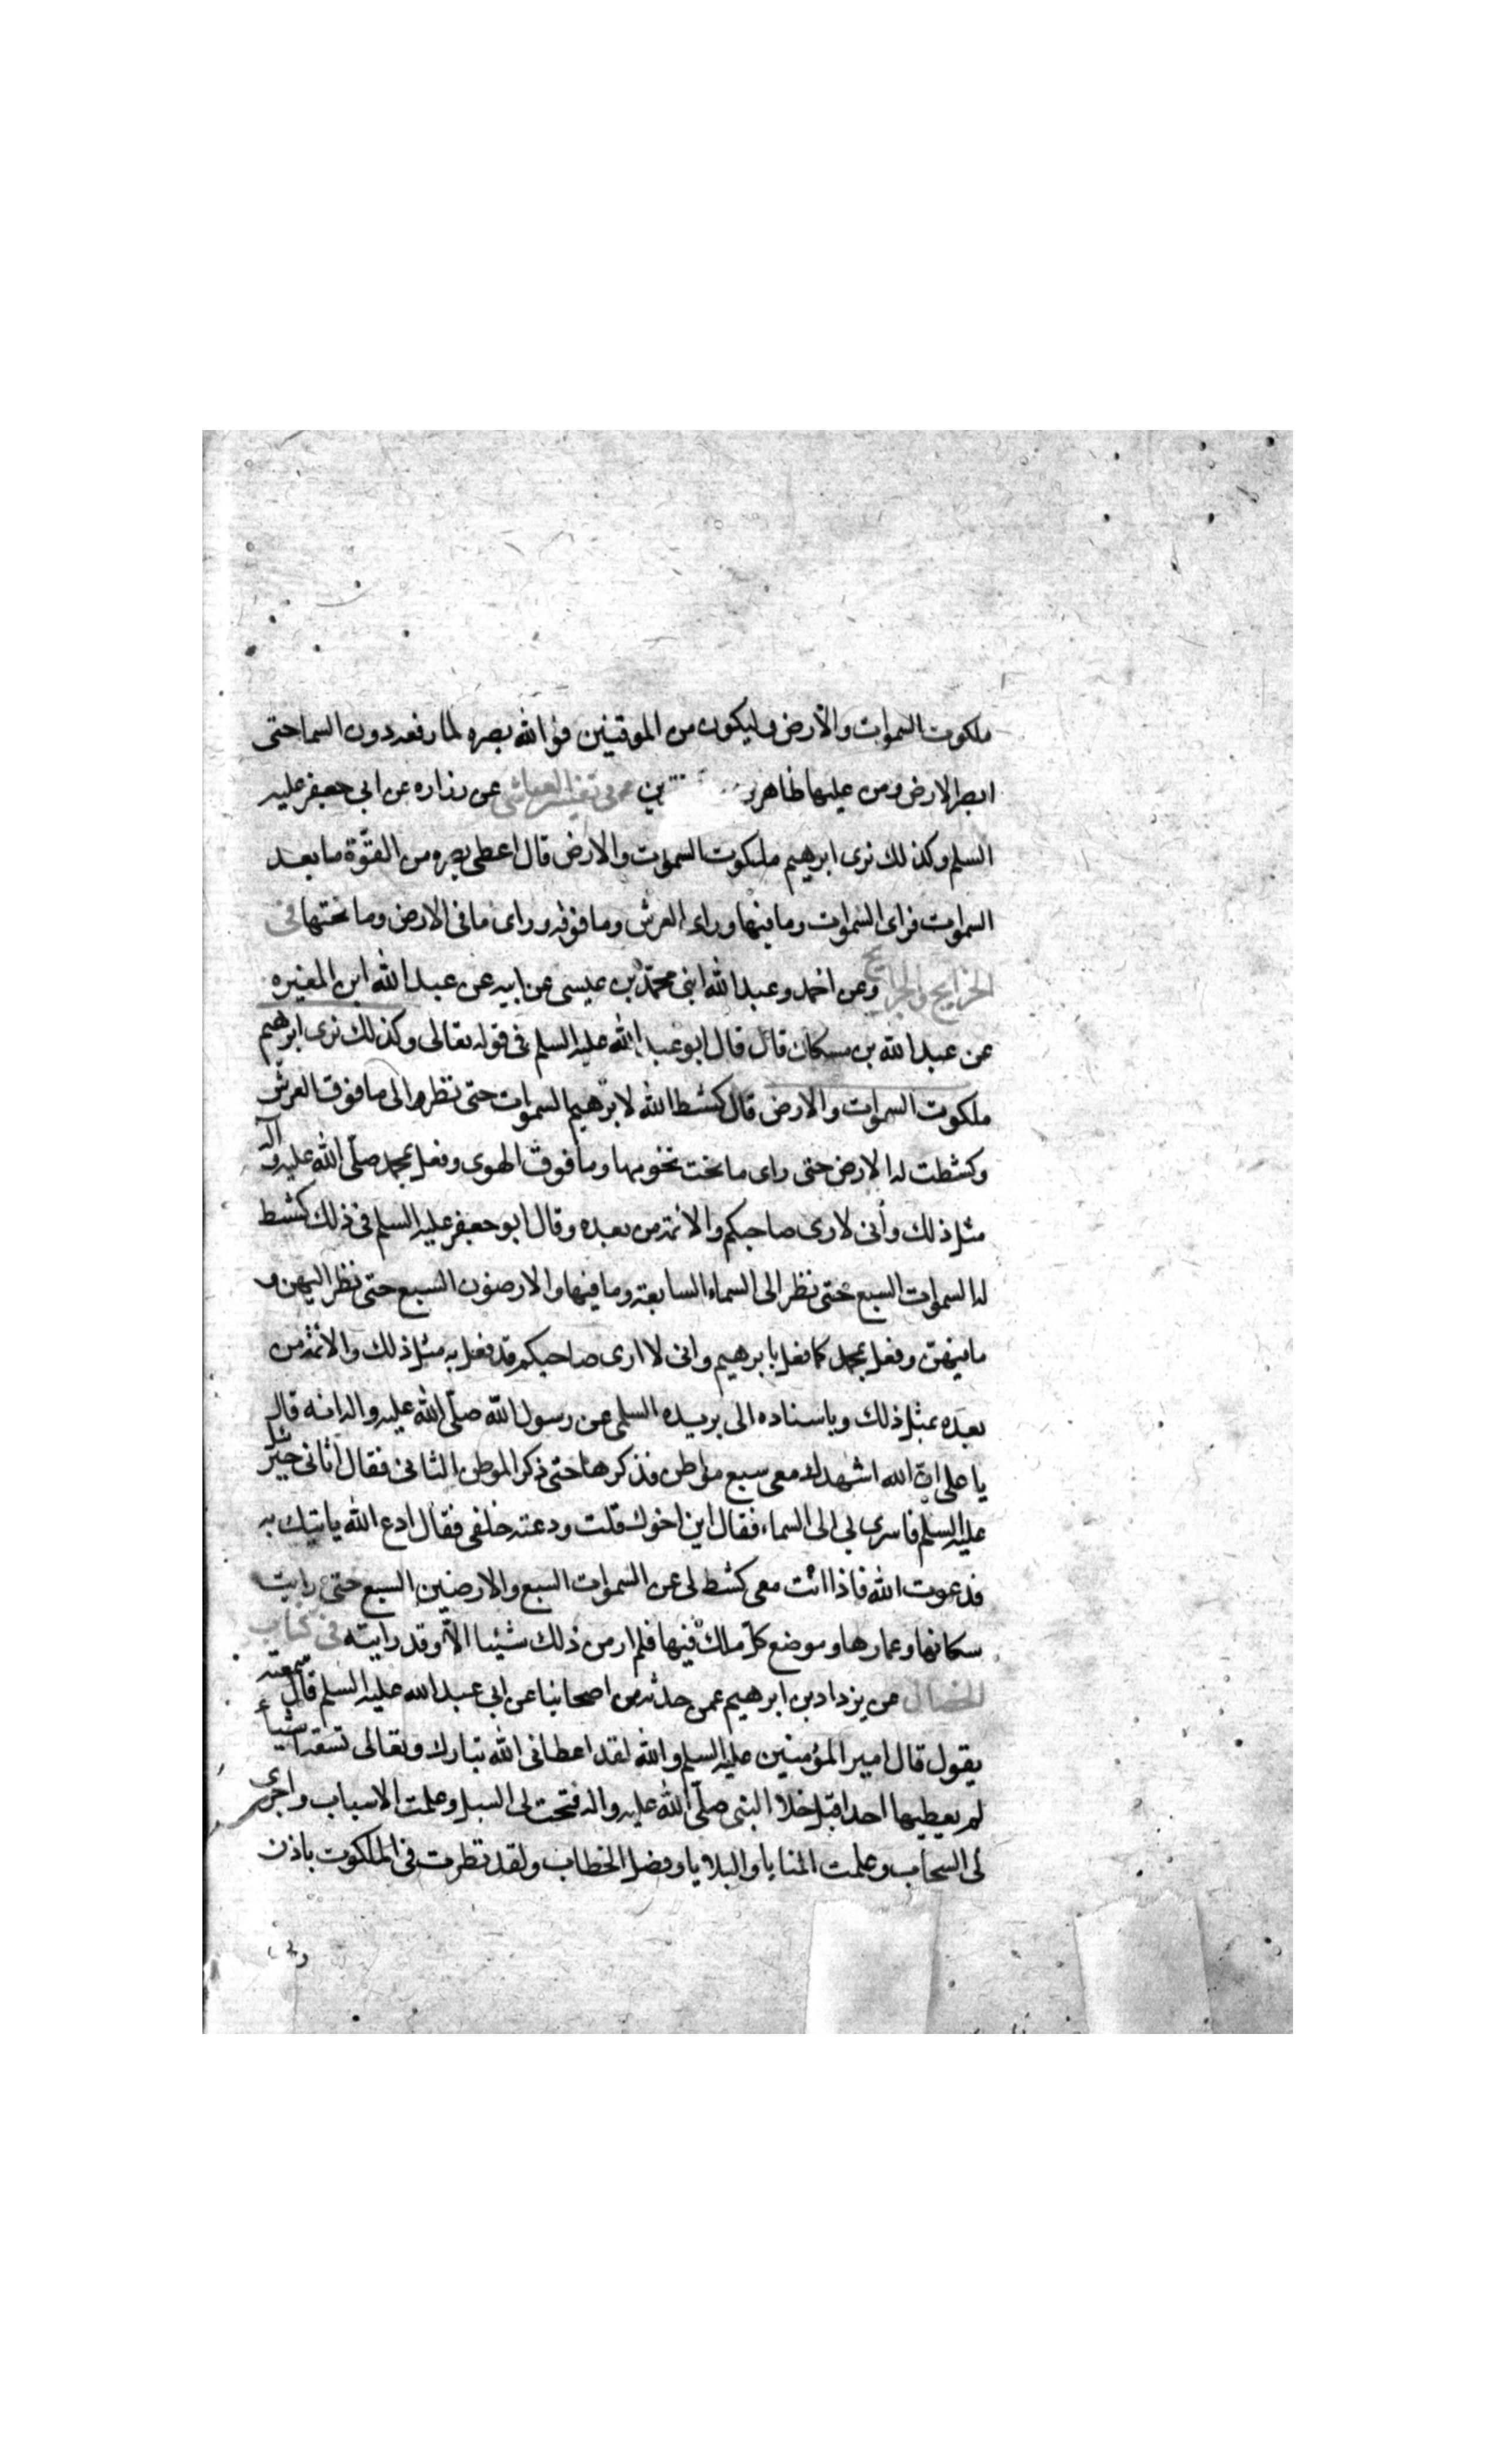 ملكوت السموات والأرض وليكون من الموقنين قوّ الله بصره لما رفعه دون السما حتى
ابصر الارض ومن عليها ظاهرين ين في تفسير العياشي عن زراره عن ابي جعفر عليه
السلم وكذلك نرى ابرهيم ملكوت السموات والارض قال اعطي بصره من القوّة ما بعد
السموات فراى السموات وما فيها وراى العرش وما فوقه وراى ما في الارض وما تحتها في
الخرايج والجرايح وعن احمد وعبد الله ابني محمّد بن عيسى عن ابيه عن عبد الله ابن المغيره
عن عبد الله بن مسكان قال قال ابو عبد الله عليه السلم في قوله تعالى وكذلك نرى ابرهيم
ملكوت السموات والارض قال كشط الله لابرهيم السموات حتى نظر الى ما فوق العرش
وكشطت له الارض حتى راى ما تحت تخومها وما فوق الهوى وفعل بمحمد صلّى الله عليه وآله
مثل ذلك وأنى لارى صاحبكم والائمة من بعده وقال ابو جعفر عليه السلم في ذلك كشط
له السموات السبع حتى نظر الى السماء السابعة وما فيها والارضون السبع حتى نظر اليهن و
ما فيهنّ وفعل بمحمد كما فعل بابرهيم وانى لا ارى صاحبكم قد فعل به مثل ذلك والائمة من
بعده بمثل ذلك وباسناده الى بريده السلمى عن رسول الله صلّى الله عليه واله انه قال
يا على انّ الله اشهدك معى سبع مواطن فذكرها حتى ذكر الموطن الثانى فقال اتانى جبرئيل
عليه السلم فاسرى بى الى السماء فقال اين اخوك قلت ودعته خلفى فقال ادع الله ياتيك به
فدعوت الله فاذا انت معى كشط لى عن السموات السبع والارضين السبع حتى رايت
سكانها وعمارها وموضع كلّ ملك فيها فلم ار من ذلك شيئا الاّ وقد رايته في كتاب
الخصال عن يزداد بن ابرهيم عمن حدثه من اصحابنا عن ابى عبد الله عليه السلم قال سمعته
يقول قال امير المؤمنين عليه السلم والله لقد اعطانى الله تبارك وتعالى تسعة اشياء
لم يعطيها احدا قبل خلا النبى صلّى الله عليه واله فتحت لى السبل وعلمت الاسباب واجرى
لى السحاب وعلمت المنايا والبلايا وفصل الخطاب ولقد نظرت في الملكوت باذن